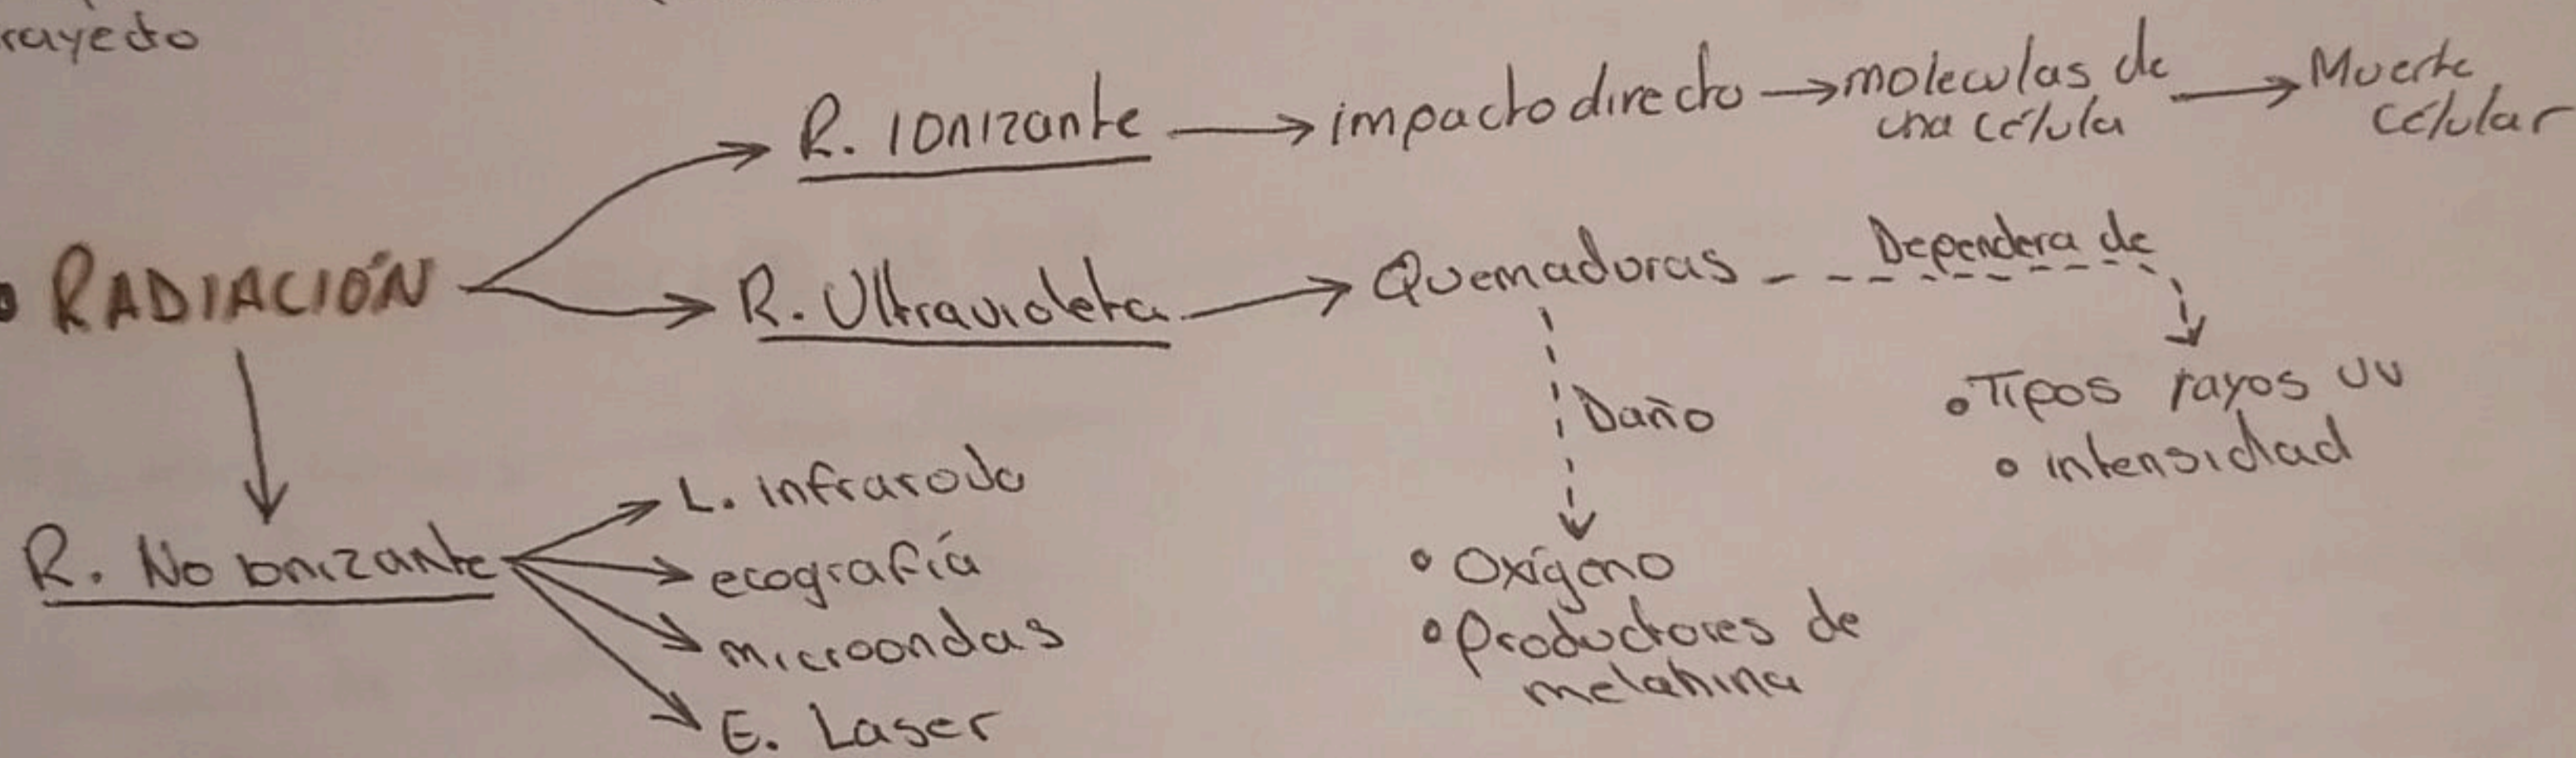 rayecto
R. Ionizante → impacto directo → moleculas de
una célula → Muerte
célular
• RADIACIÓN
R. Ultravioleta → Quemaduras - - Dependera de
• Tipos rayos UV
• intensidad
Daño
• Oxígeno
• Productores de
melanina
R. No Ionizante
L. infrarojo
ecografía
microondas
E. Laser